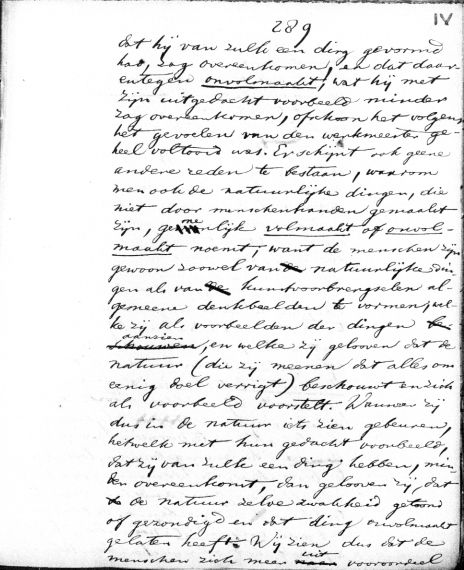 289
IV
dat hij van zulk een ding gevormd
had, zag overeenkomen, en dat daar-
entegen onvolmaakt, wat hij met
zijn uitgedacht voorbeeld minder
zag overeenkomen, ofschoon het volgens
het gevoelen van den werkmeester ge-
heel voltooid was. Er schijnt ook geene
andere reden te bestaan, waarom
men ook de natuurlijke dingen, die
niet door menschenhanden gemaakt
zijn, gemeenlijk volmaakt of onvol-
maakt noemt, want de menschen zijn
gewoon zoowel van natuurlijke din-
gen als van kunstvoortbrengselen al-
gemeene denkbeelden te vormen, wel-
ke zij als voorbeelden der dingen
aanzien, en welke zij gelooven dat de
natuur (die zij meenen dat alles om
eenig doel verrigt) beschouwt en zich
als voorbeeld voorstelt. Wanneer zij
dus in de natuur iets zien gebeuren,
hetwelk met hun gedacht voorbeeld,
dat zij van zulk een ding hebben, min-
der overeenkomt, dan gelooven zij, dat
de natuur zelve zwakheid getoond
of gezondigd en dat ding onvolmaakt
gelaten heeft. Wij zien dus dat de
menschen zich meer uit vooroordeel